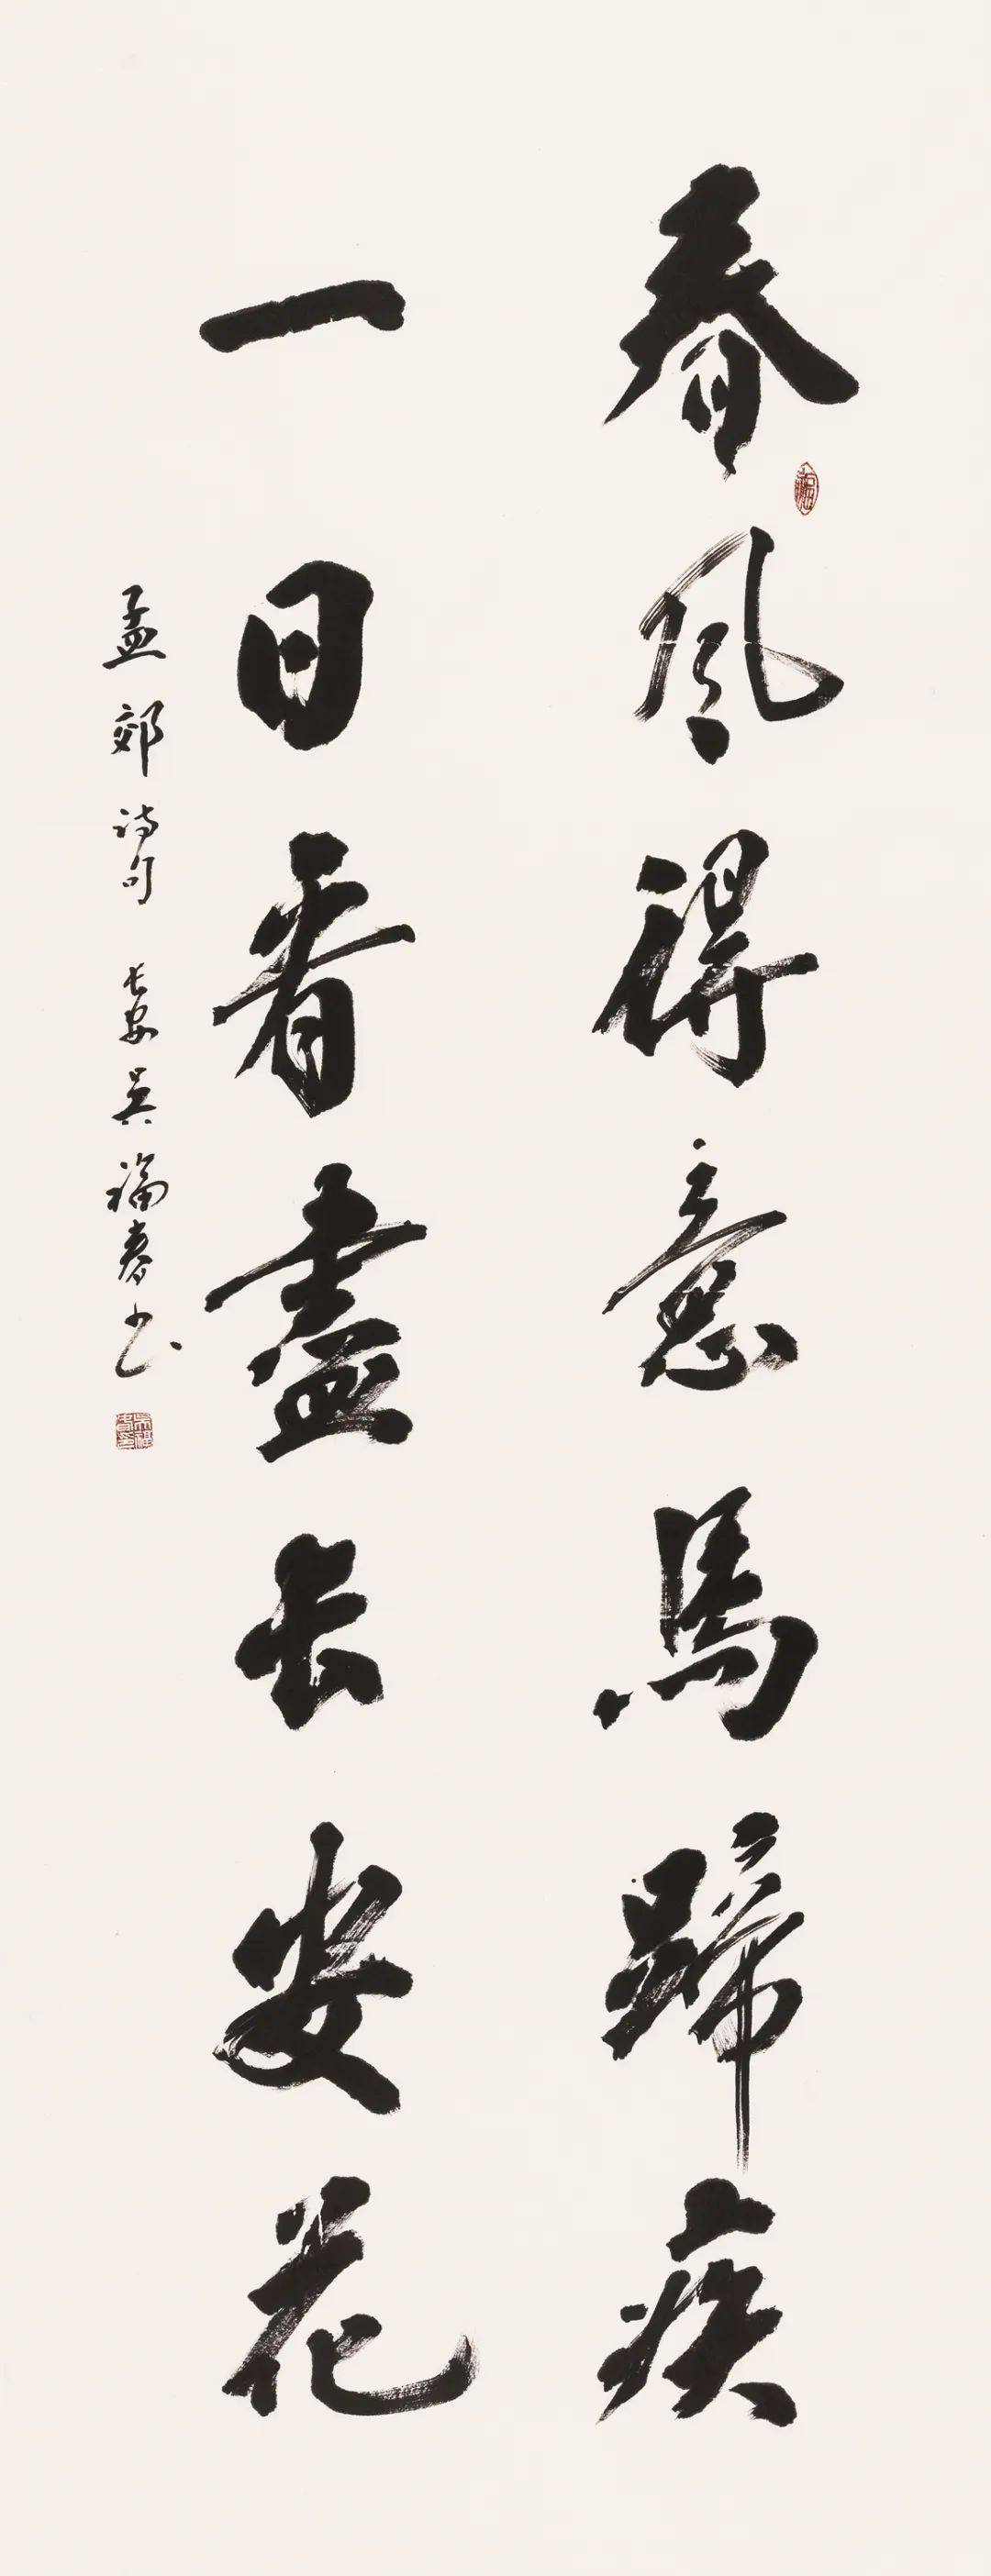 春風得意馬蹄疾
一日看盡長安花
孟郊詩句 長安吳福春书